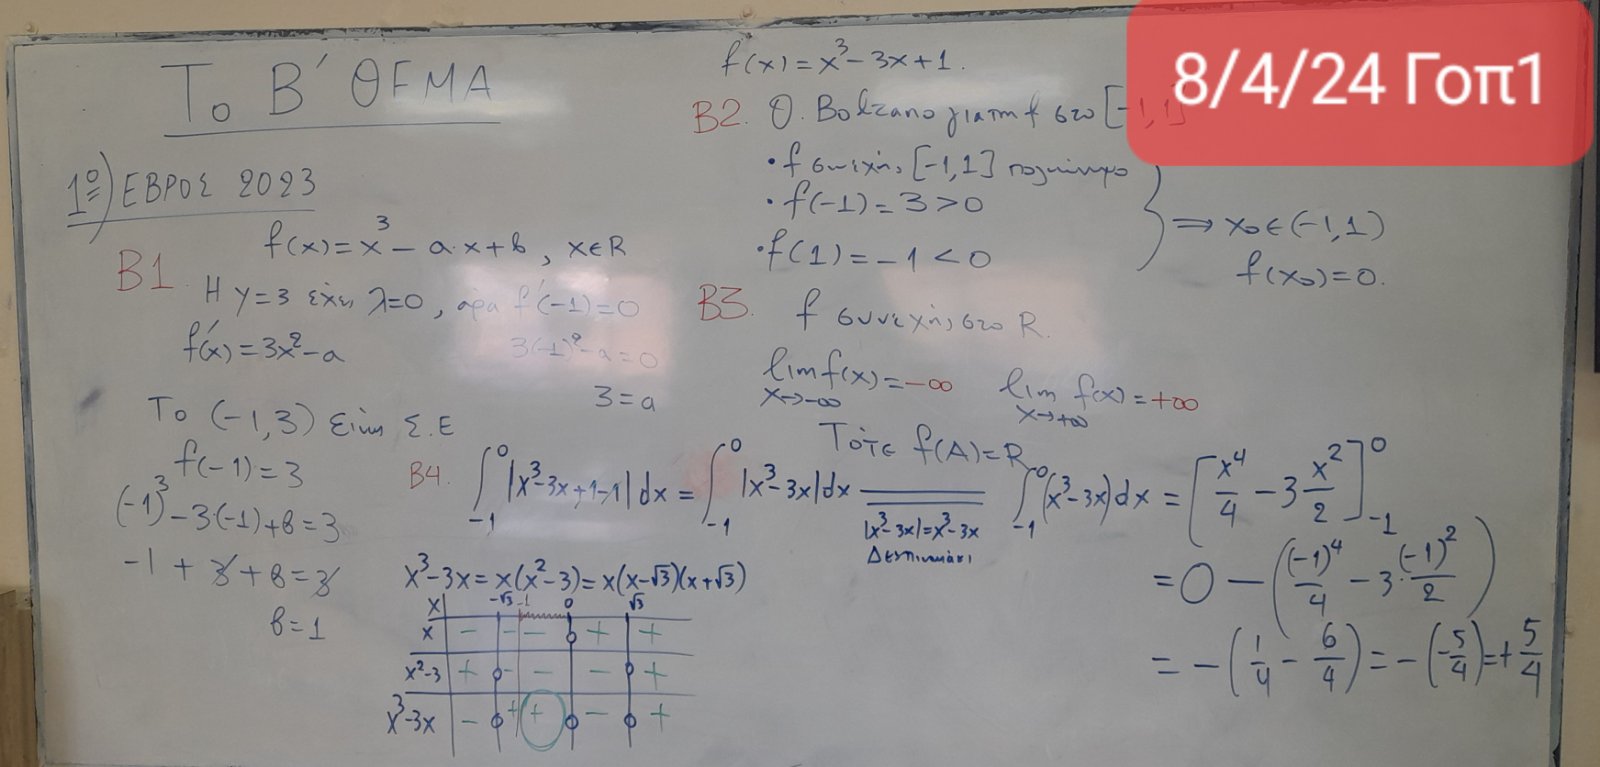 Το Β' ΘΕΜΑ
1º) ΕΒΡΟΣ 2023
f(x)=x³-a·x+b, x∈R
B1. Η y=3 έχει λ=0, άρα f'(-1)=0
f'(x)=3x²-a
3(-1)²-a=0
3=a
Το (-1,3) είναι Σ.Ε
f(-1)=3
(-1)³-3(-1)+b=3
-1+3+b=3
b=1
f(x)=x³-3x+1.
B2. Θ. Bolzano για τη f στο [-1,1]
• f συνεχής [-1,1] πολυώνυμο
• f(-1)=3>0
• f(1)=-1<0
⇒ x₀∈(-1,1)
f(x₀)=0.
B3. f συνεχής στο R.
lim f(x)=-∞ lim f(x)=+∞
x→-∞ x→+∞
Τότε f(A)=R
B4. ∫₋₁⁰ |x³-3x+1-1|dx = ∫₋₁⁰ |x³-3x|dx = ∫₋₁⁰ (x³-3x)dx = [x⁴/4 - 3 x²/2]₋₁⁰
|x³-3x|=x³-3x
Δες πινακάκι
= 0 - ((-1)⁴/4 - 3·(-1)²/2)
= -(1/4 - 6/4) = -(-5/4) = +5/4
x³-3x=x(x²-3)=x(x-√3)(x+√3)
x -√3 -1 0 √3
x - - - + +
x²-3 + - - - +
x³-3x - + + - +
8/4/24 Γοπ1